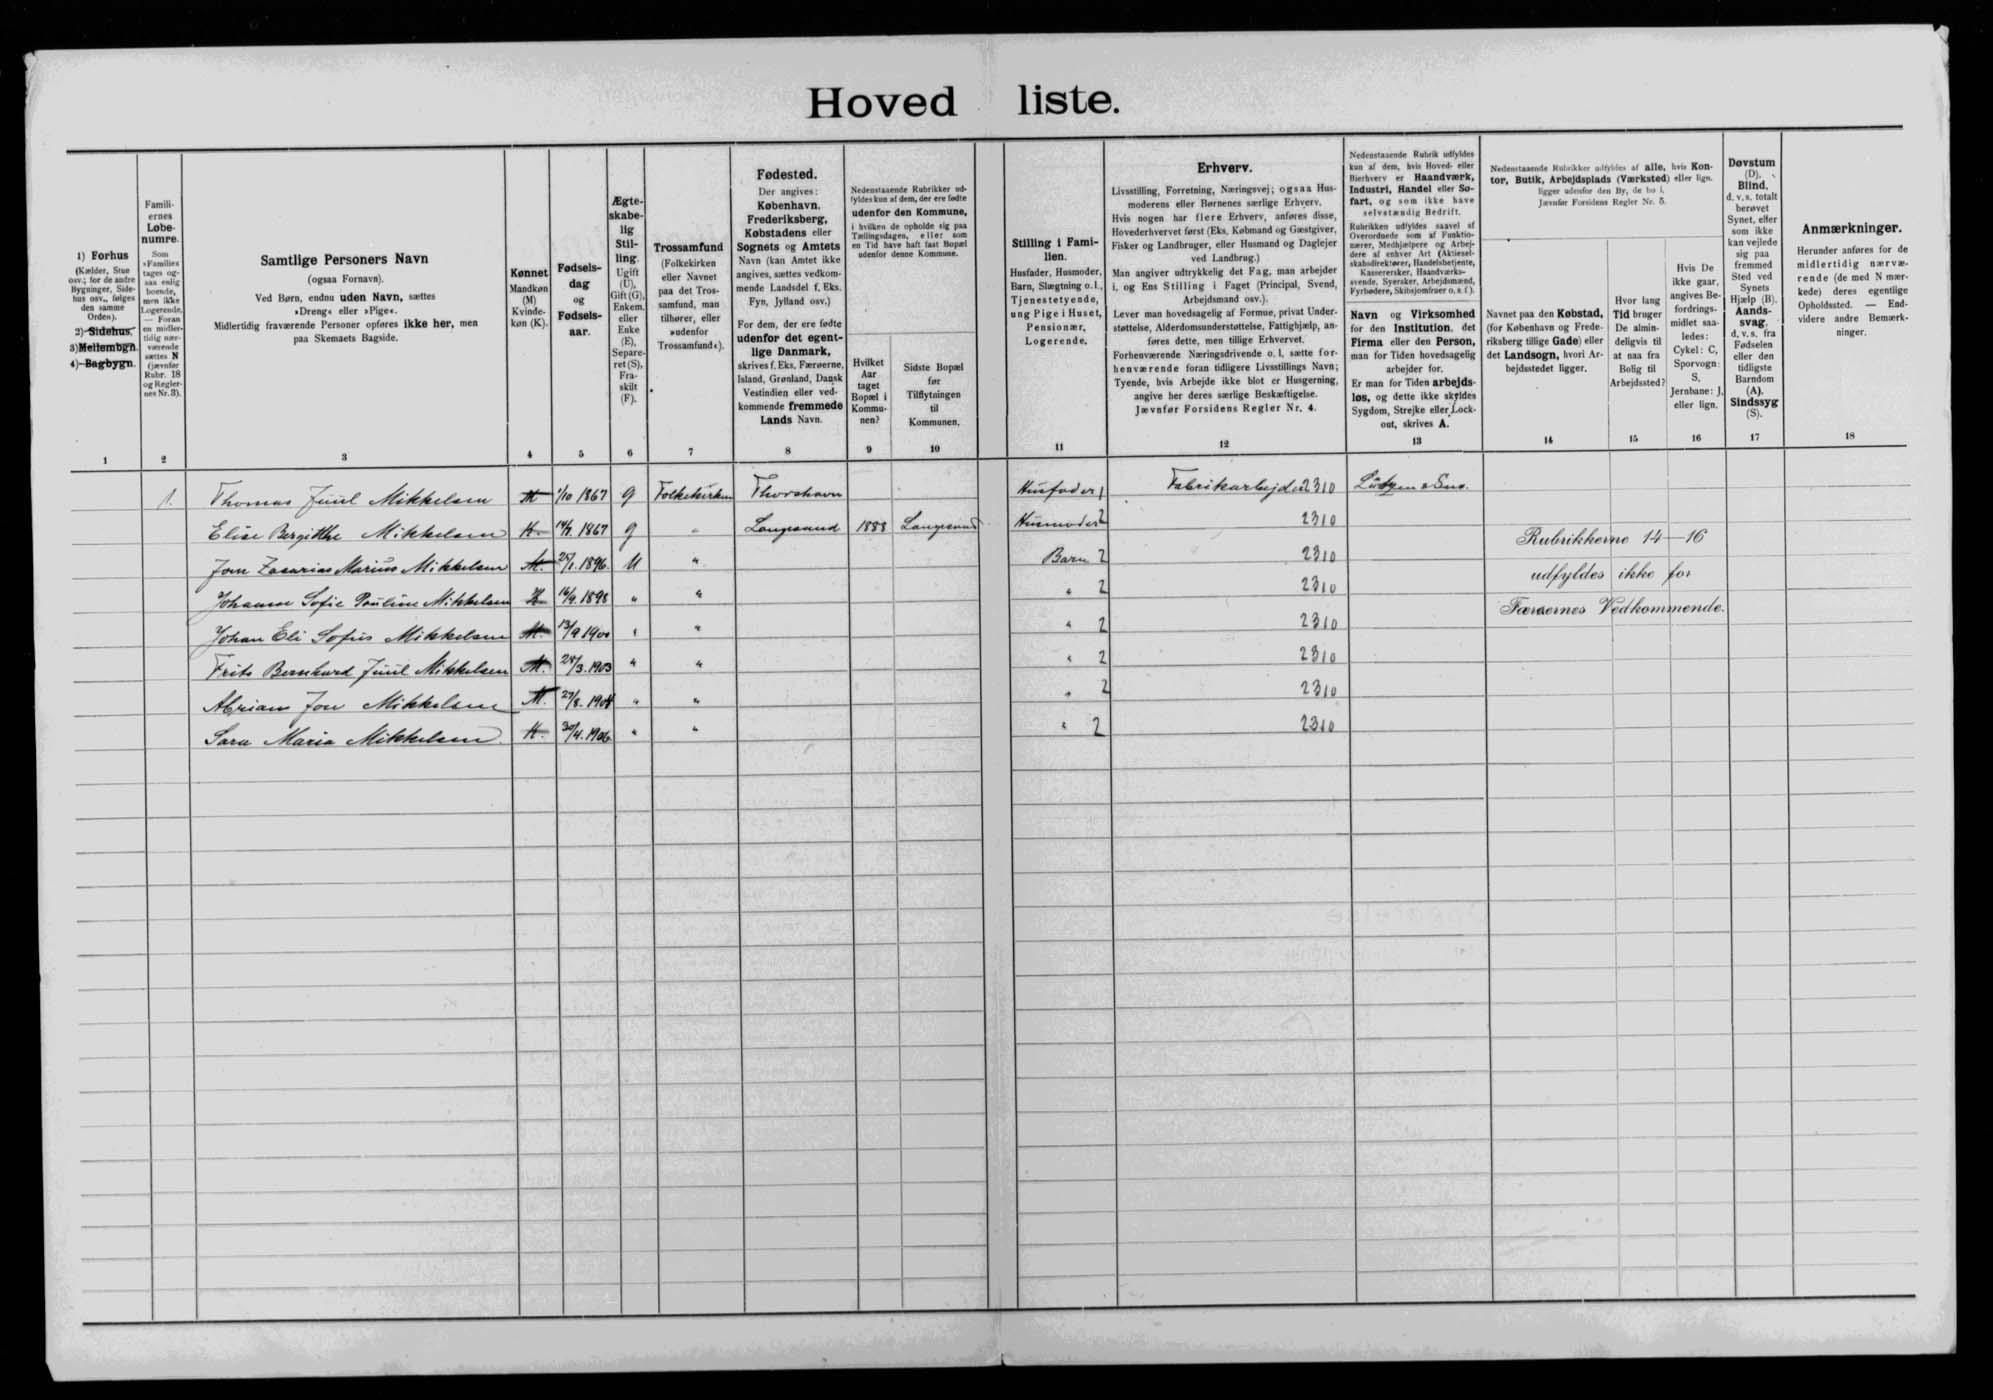 Hoved liste.
1) Forhus
(Kælder, Stue
osv.; for de andre
Bygninger, Side-
hus osv., følges
den samme
Orden).
2) Sidehus.
3) Mellembgn.
4) Bagbygn.
1
Famili-
ernes
Løbe-
numre.
Som
»Familie«
tages og-
saa enlig
boende,
men ikke
Logerende.
— Foran
en midler-
tidig nær-
værende
sættes N
(jævnfør
Rubr. 18
og Regler-
nes Nr. 3).
2
Samtlige Personers Navn
(ogsaa Fornavn).
Ved Børn, endnu uden Navn, sættes
»Dreng« eller »Pige«.
Midlertidig fraværende Personer opføres ikke her, men
paa Skemaets Bagside.
3
Kønnet
Mandkøn
(M)
Kvinde-
køn (K).
4
Fødsels-
dag
og
Fødsels-
aar.
5
Ægte-
skabe-
lig
Stil-
ling.
Ugift
(U),
Gift (G),
Enkem.
eller
Enke
(E),
Separe-
ret (S),
Fra-
skilt
(F).
6
Trossamfund
(Folkekirken
eller Navnet
paa det Tros-
samfund, man
tilhører, eller
»udenfor
Trossamfund«).
7
Fødested.
Der angives:
København,
Frederiksberg,
Købstadens eller
Sognets og Amtets
Navn (kan Amtet ikke
angives, sættes vedkom-
mende Landsdel f. Eks.
Fyn, Jylland osv.)
For dem, der ere fødte
udenfor det egent-
lige Danmark,
skrives f. Eks. Færøerne,
Island, Grønland, Dansk
Vestindien eller ved-
kommende fremmede
Lands Navn.
8
Nedenstaaende Rubrikker ud-
fyldes kun af dem, der ere fødte
udenfor den Kommune,
i hvilken de opholde sig paa
Tællingsdagen, eller som
en Tid have haft fast Bopæl
udenfor denne Kommune.
Hvilket
Aar
taget
Bopæl i
Kommu-
nen?
9
Sidste Bopæl
før
Tilflytningen
til
Kommunen.
10
Stilling i Fami-
lien.
Husfader, Husmoder,
Barn, Slægtning o. l.,
Tjenestetyende,
ung Pige i Huset,
Pensionær,
Logerende.
11
Erhverv.
Livsstilling, Forretning, Næringsvej; ogsaa Hus-
moderens eller Børnenes særlige Erhverv.
Hvis nogen har flere Erhverv, anføres disse,
Hovederhvervet først (Eks. Købmand og Gæstgiver,
Fisker og Landbruger, eller Husmand og Daglejer
ved Landbrug.)
Man angiver udtrykkelig det Fag, man arbejder
i, og Ens Stilling i Faget (Principal, Svend,
Arbejdsmand osv.).
Lever man hovedsagelig af Formue, privat Under-
støttelse, Alderdomsunderstøttelse, Fattighjælp, an-
føres dette, men tillige Erhvervet.
Forhenværende Næringsdrivende o. l. sætte for-
henværende foran tidligere Livsstillings Navn;
Tyende, hvis Arbejde ikke blot er Husgerning,
angive her deres særlige Beskæftigelse.
Jævnfør Forsidens Regler Nr. 4.
12
Nedenstaaende Rubrik udfyldes
kun af dem, hvis Hoved- eller
Bierhverv er Haandværk,
Industri, Handel eller Sø-
fart, og som ikke have
selvstændig Bedrift.
Rubrikken udfyldes saavel af
Overordnede som af Funktio-
nærer, Medhjælpere og Arbej-
dere af enhver Art (Aktiesel-
skabsdirektører, Handelsbetjente,
Kasserersker, Haandværks-
svende, Syersker, Arbejdsmænd,
Fyrbødere, Skibsjomfruer o. s. f.).
Navn og Virksomhed
for den Institution, det
Firma eller den Person,
man for Tiden hovedsagelig
arbejder for.
Er man for Tiden arbejds-
løs, og dette ikke skyldes
Sygdom, Strejke eller Lock-
out, skrives A.
13
Nedenstaaende Rubrikker udfyldes af alle, hvis Kon-
tor, Butik, Arbejdsplads (Værksted) eller lign.
ligger udenfor den By, de bo i.
Jævnfør Forsidens Regler Nr. 5.
Navnet paa den Købstad,
(for København og Frede-
riksberg tillige Gade) eller
det Landsogn, hvori Ar-
bejdsstedet ligger.
14
Hvor lang
Tid bruger
De almin-
deligvis til
at naa fra
Bolig til
Arbejdssted?
15
Hvis De
ikke gaar,
angives Be-
fordrings-
midlet saa-
ledes:
Cykel: C,
Sporvogn:
S,
Jernbane: J,
eller lign.
16
Døvstum
(D),
Blind,
d. v. s. totalt
berøvet
Synet, eller
som ikke
kan vejlede
sig paa
fremmed
Sted ved
Synets
Hjælp (B).
Aands-
svag,
d. v. s. fra
Fødselen
eller den
tidligste
Barndom
(A).
Sindssyg
(S).
17
Anmærkninger.
Herunder anføres for de
midlertidig nærvæ-
rende (de med N mær-
kede) deres egentlige
Opholdssted. — End-
videre andre Bemærk-
ninger.
18
1. Thomas Juul Mikkelsen M 1/10 1867 G Folkekirken Thorshavn Husfader 1 Fabrikarbejder 2310
Elise Bergitthe Mikkelsen K 1867 G " Langesand 1888 Langesand Husmoder 2 2310
Jon Zacarias Marius Mikkelsen M. 25/1. 1896. U " Barn 2 2310
Johanne Sofie Pouline Mikkelsen K 16/9. 1898 " " " 2 2310
Johan Eli Sofus Mikkelsen M. 13/9 1900 " " " 2 2310
Frits Bernhard Juul Mikkelsen M. 28/3. 1903 " " " 2 2310
Jon Mikkelsen M. 27/8. " " " 2 2310
Sara Maria Mikkelsen. K. 30/4. 1906. " " " 2 2310
Rubrikkerne 14—16
udfyldes ikke for
Færøernes Vedkommende.